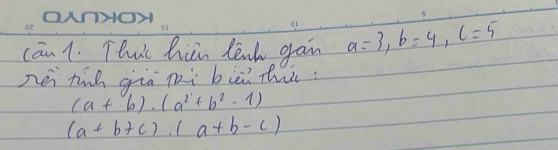 KOKUYO
20 15 10 5
Câu 1. Thực hiện lệnh gán a=3, b=4, c=5
rồi tính giá trị biểu thức:
(a + b).(a² + b² - 1)
(a + b + c).(a + b - c)